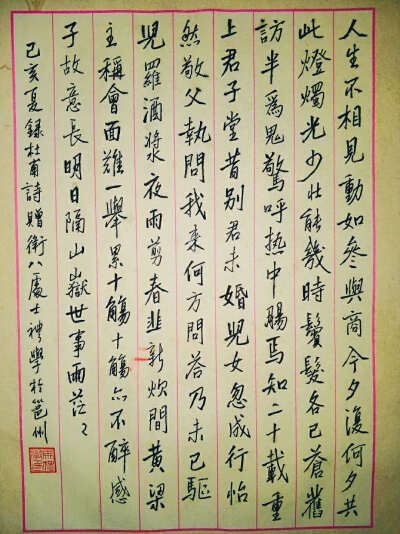 人生不相見動如參與商今夕復何夕共
此燈燭光少壯能幾時鬢髮各已蒼舊
訪半為鬼驚呼热中腸焉知二十載重
上君子堂昔別君未婚兒女忽成行怡
然敬父執問我来何方問答乃未已驅
兒羅酒漿夜雨剪春韭新炊間黄粱
主稱會面難一舉累十觴十觴亦不醉感
子故意長明日隔山嶽世事兩茫〻
己亥夏録杜甫詩贈衛八處士